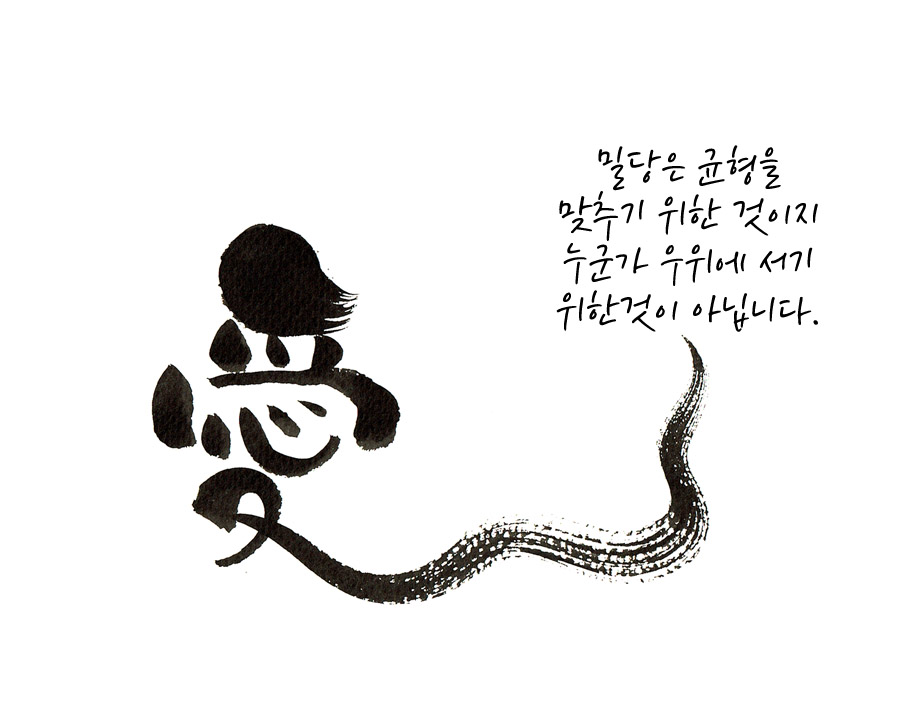 愛
밀당은 균형을
맞추기 위한 것이지
누군가 우위에 서기
위한것이 아닙니다.